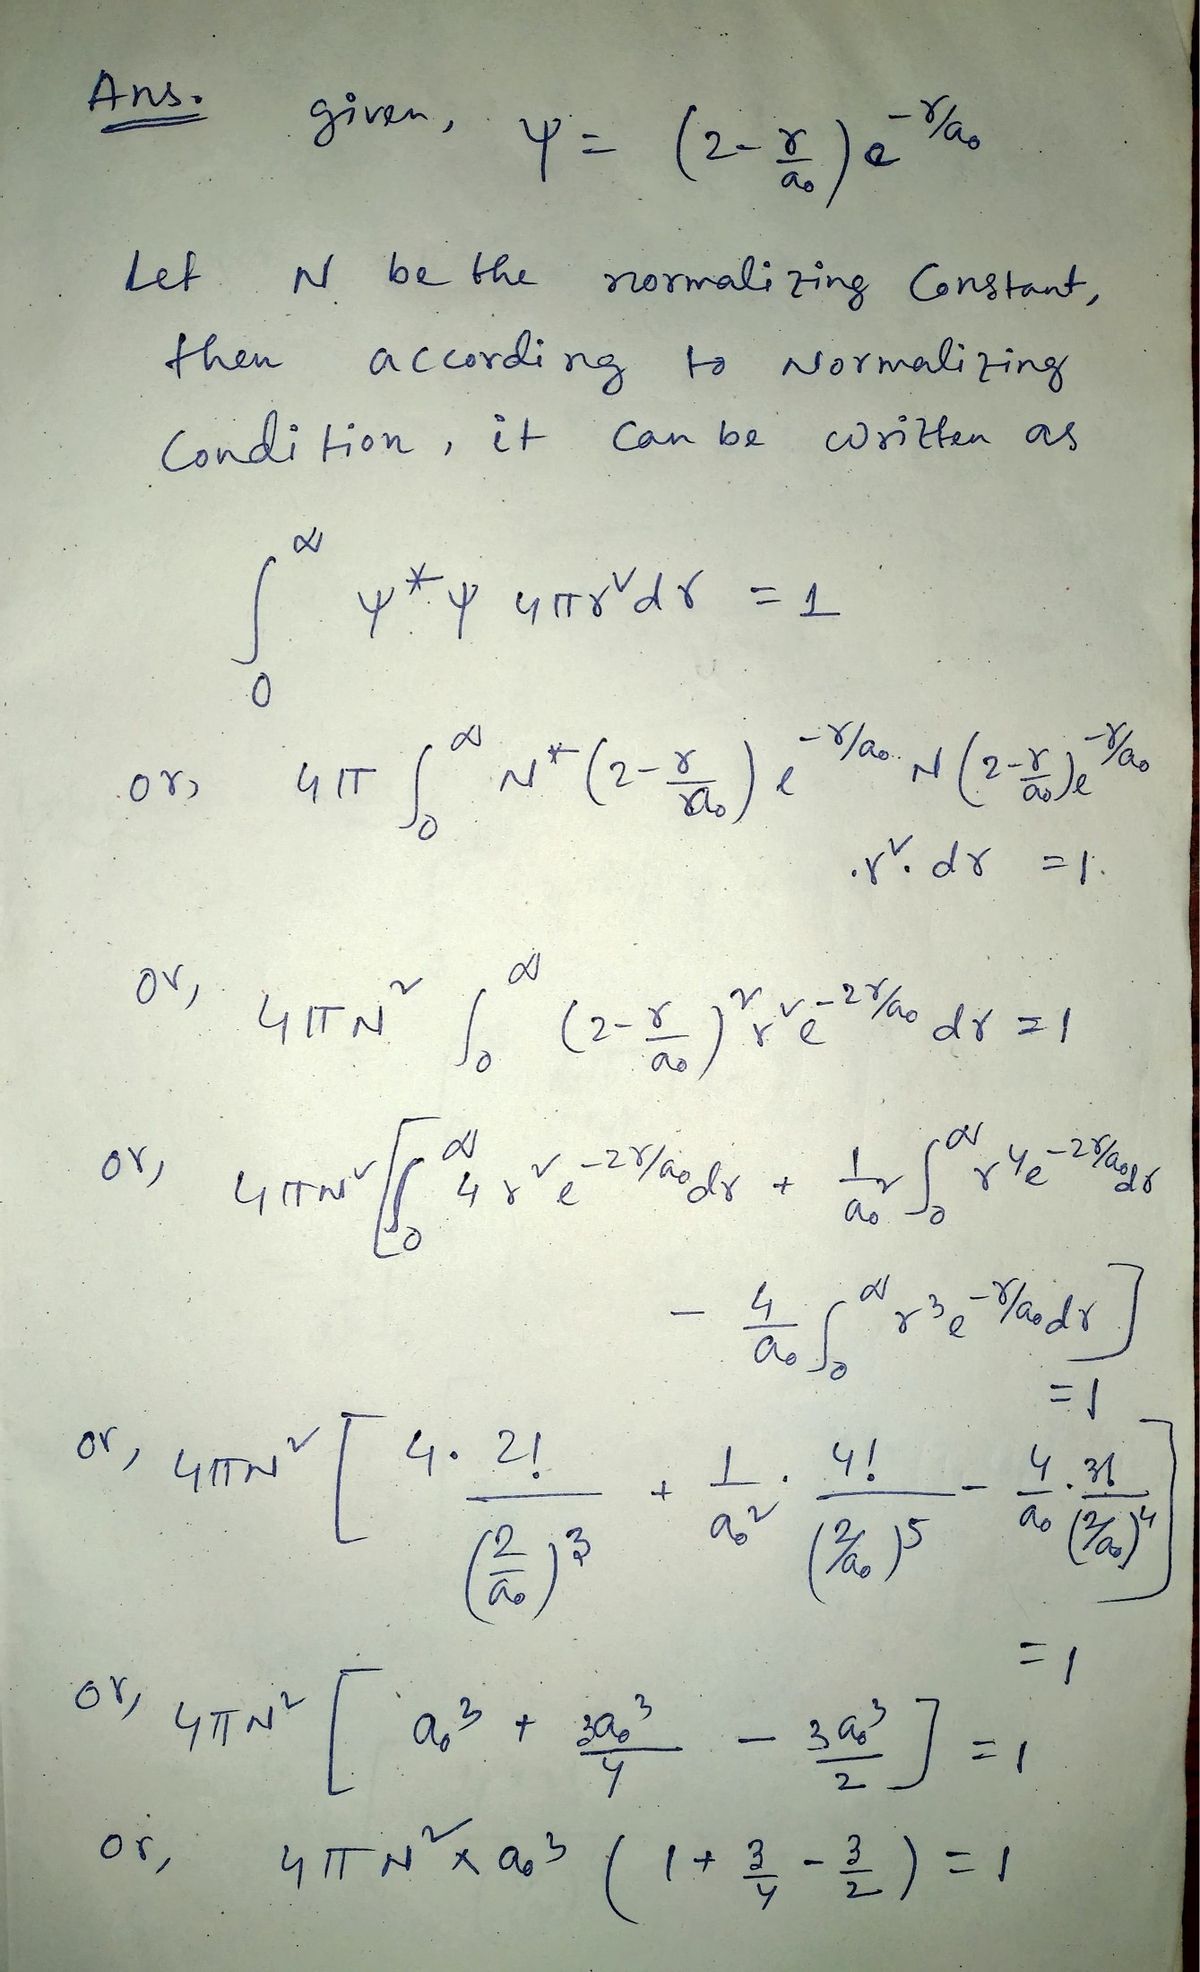 Ans. given, ψ = (2 - r/a₀) e^(-r/a₀)
Let N be the normalizing Constant,
then according to Normalizing
Condition, it can be written as
∫₀^∞ ψ* ψ 4πr² dr = 1
or, 4π ∫₀^∞ N* (2 - r/a₀) e^(-r/a₀) N (2 - r/a₀) e^(-r/a₀)
. r² . dr = 1.
or, 4πN² ∫₀^∞ (2 - r/a₀)² r² e^(-2r/a₀) dr = 1
or, 4πN² [ ∫₀^∞ 4 r² e^(-2r/a₀) dr + 1/a₀² ∫₀^∞ r⁴ e^(-2r/a₀) dr
- 4/a₀ ∫₀^∞ r³ e^(-r/a₀) dr ]
= 1
or, 4πN² [ 4. 2!/(2/a₀)³ + 1/a₀² . 4!/(2/a₀)⁵ - 4/a₀ . 3!/(2/a₀)⁴ ]
= 1
or, 4πN² [ a₀³ + 3a₀³/4 - 3a₀³/2 ] = 1
or, 4πN² × a₀³ ( 1 + 3/4 - 3/2 ) = 1